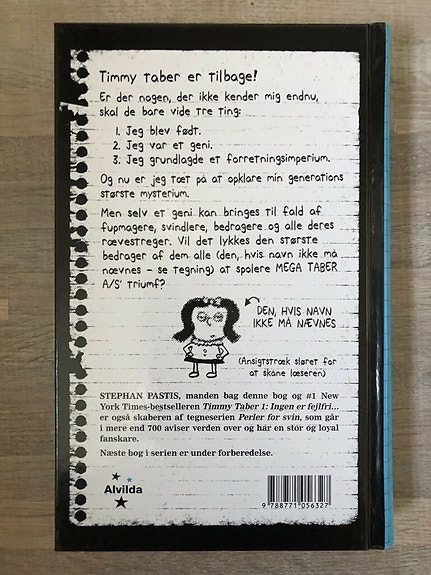 Timmy Taber er tilbage!
Er der nogen, der ikke kender mig endnu,
skal de bare vide tre ting:
1. Jeg blev født.
2. Jeg var et geni.
3. Jeg grundlagde et forretningsimperium.
Og nu er jeg tæt på at opklare min generations
største mysterium.
Men selv et geni kan bringes til fald af
fupmagere, svindlere, bedragere og alle deres
rævestreger. Vil det lykkes den største
bedrager af dem alle (den, hvis navn ikke må
nævnes – se tegning) at spolere MEGA TABER
A/S' triumf?
DEN, HVIS NAVN
IKKE MÅ NÆVNES
(Ansigtstræk sløret for
at skåne læseren)
STEPHAN PASTIS, manden bag denne bog og #1 New
York Times-bestselleren Timmy Taber 1: Ingen er fejlfri...
er også skaberen af tegneserien Perler for svin, som går
i mere end 700 aviser verden over og har en stor og loyal
fanskare.
Næste bog i serien er under forberedelse.
Alvilda
9 788771 056327